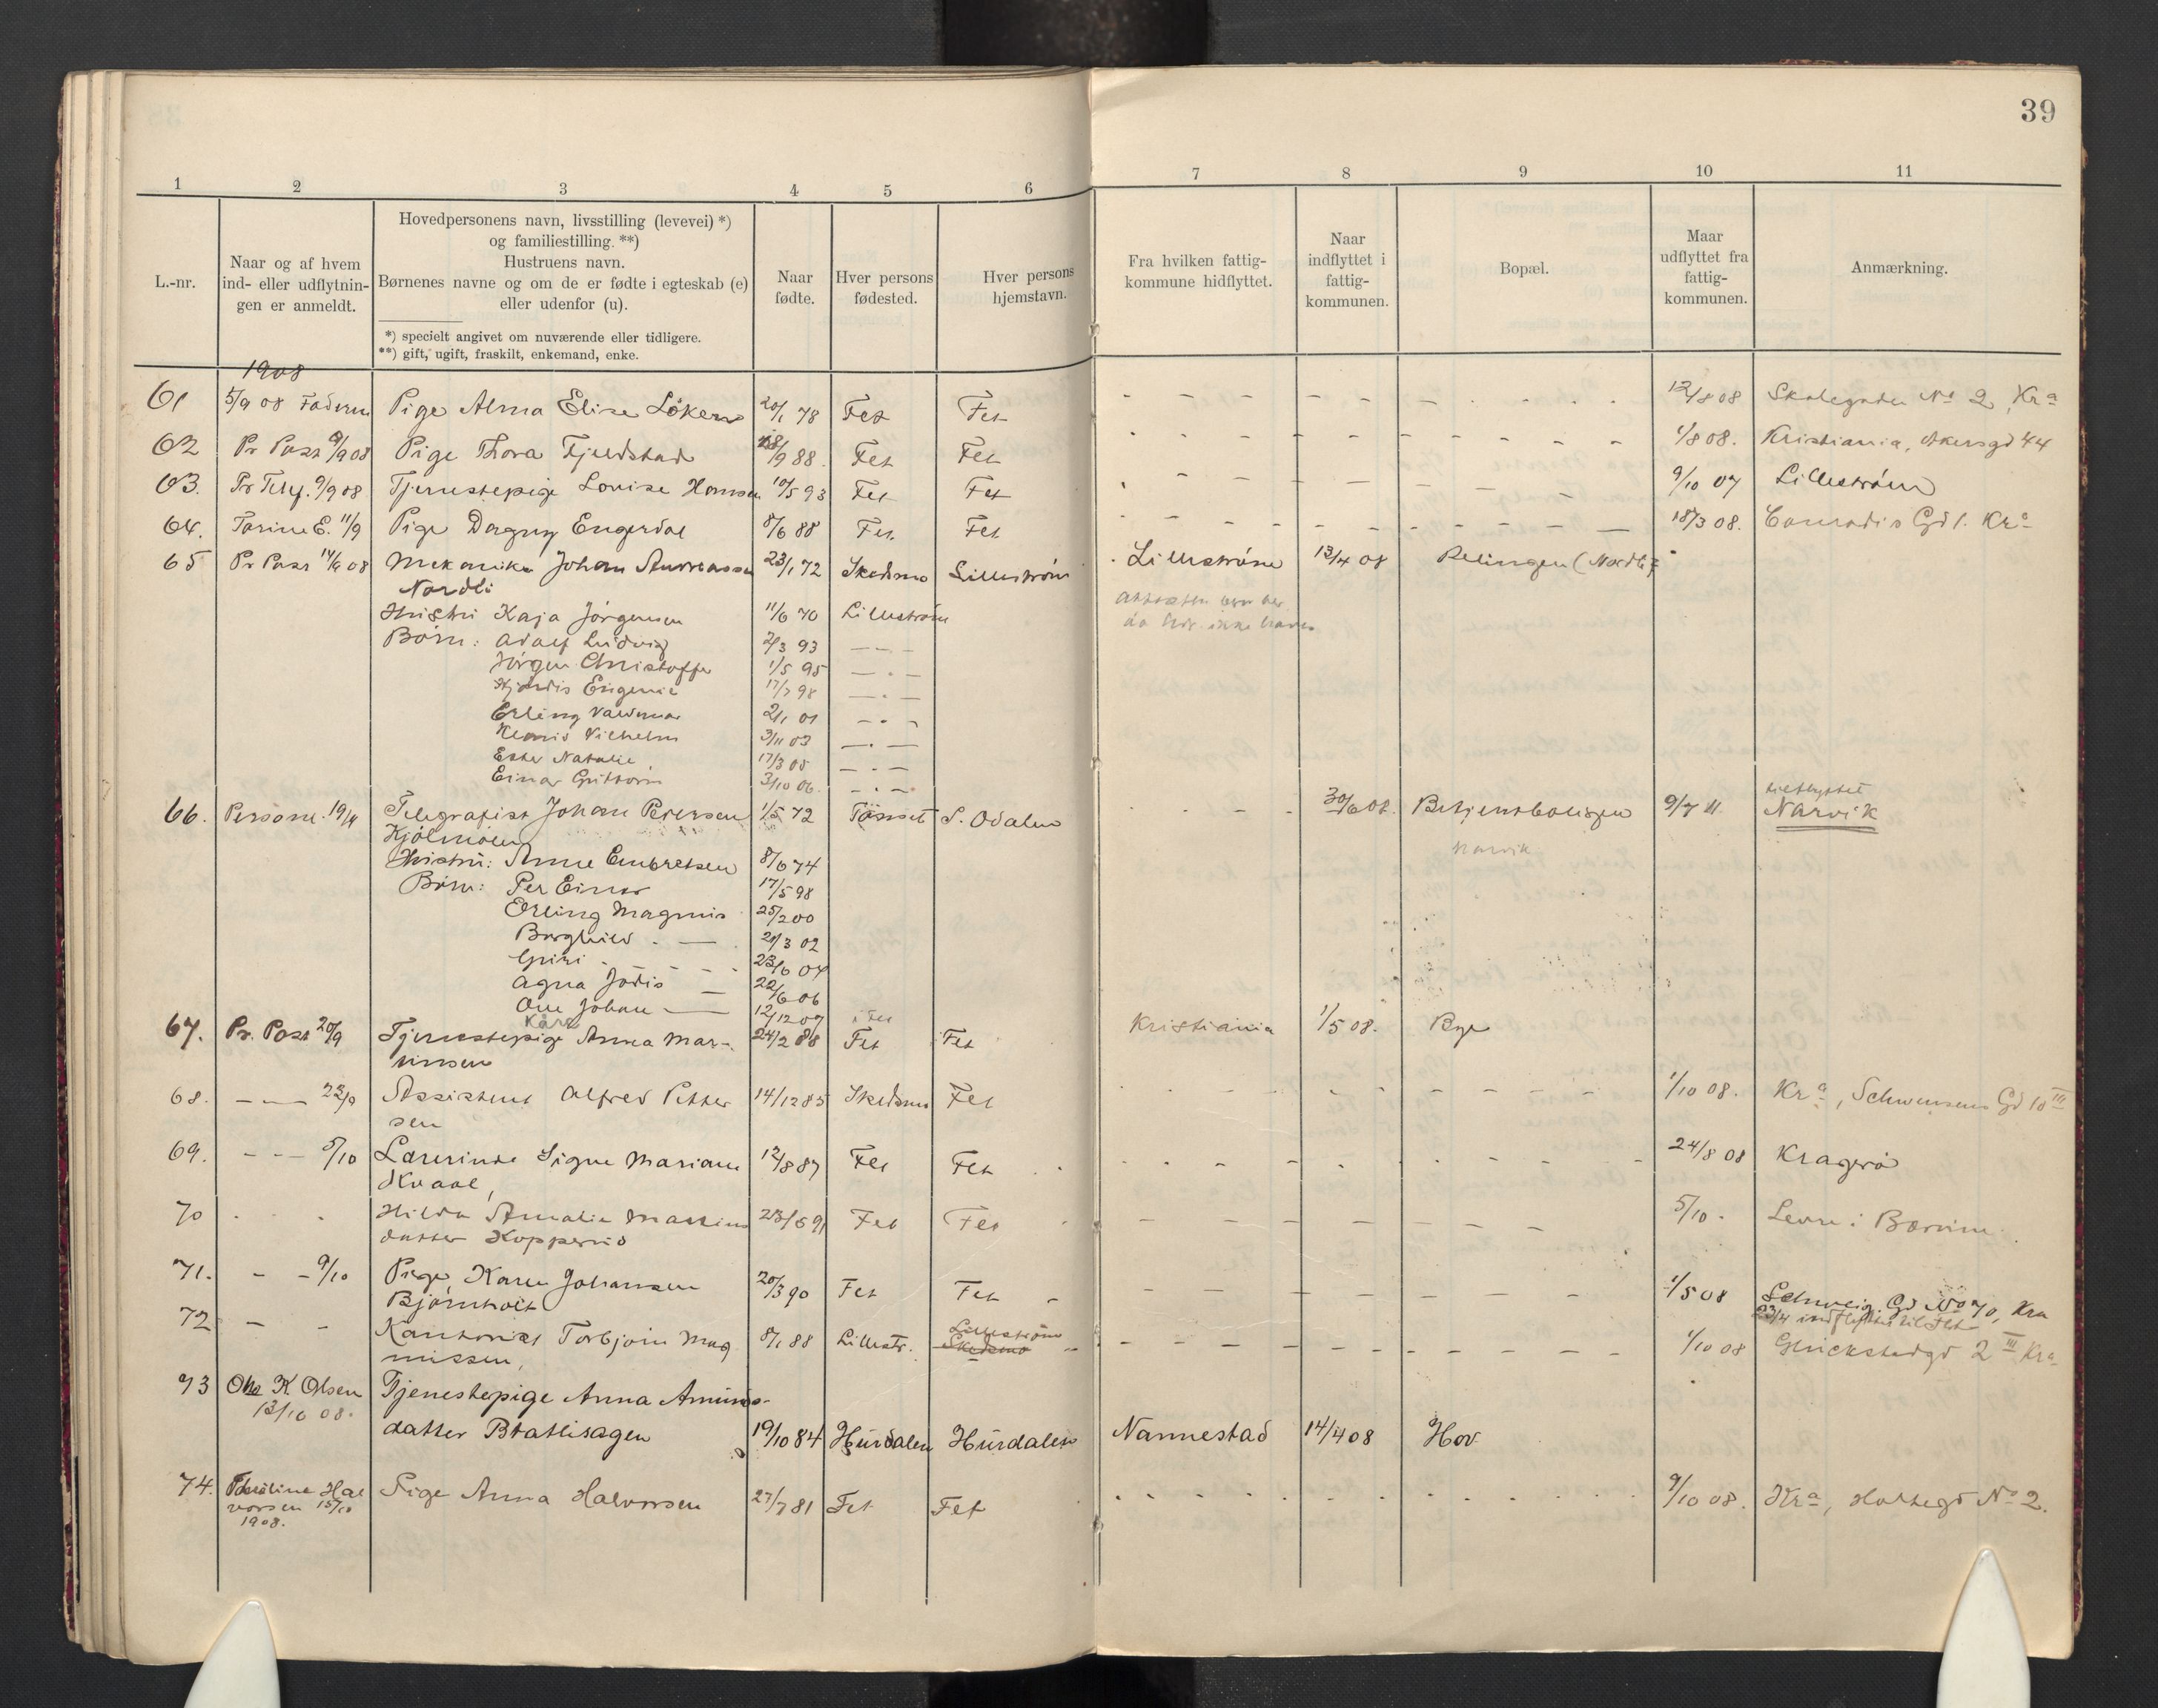 39
1 2 3 4 5 6 7 8 9 10 11
L.-nr.
Naar og af hvem
ind- eller udflytnin-
gen er anmeldt.
Hovedpersonens navn, livsstilling (levevei) *)
og familiestilling. **)
Hustruens navn.
Børnenes navne og om de er fødte i egteskab (e)
eller udenfor (u).
*) specielt angivet om nuværende eller tidligere.
**) gift, ugift, fraskilt, enkemand, enke.
Naar
fødte.
Hver persons
fødested.
Hver persons
hjemstavn.
Fra hvilken fattig-
kommune hidflyttet.
Naar
indflyttet i
fattig-
kommunen.
Bopæl.
Maar
udflyttet fra
fattig-
kommunen.
Anmærkning.
1908
61 5/9 08 Faderen Pige Alma Elise Löken 20/1 78 Fet Fet 12/8 08 Skolegaden No 2, Kra
62 Pr Post 9/9 08 Pige Thora Fjeldstad 18/9 88 Fet Fet 1/8 08. Kristiania, Akersgd 44
63. Pr Telef. 9/9 08 Tjenestepige Lovise Hansen 10/5 93 Fet Fet 9/10 07 Lilleström
64. Torine E. 11/9 Pige Dagny Engerdal 8/6 88 Fet Fet 18/3 08. Conradis Gd 1. Kra
65 Pr Post 14/9 08 Mekaniker Johan Andreassen 23/1 72 Skedsmo Lilleström Lilleström 13/4 08 Relingen (Nordli)
Nordli
Hustru Kaja Jörgensen 11/6 70 Lilleström
Börn: Adolf Ludvig 2/3 93 — . —
Jörgen Christoffer 1/5 95 — . —
Hjördis Eugenie 17/7 98 — . —
Erling Valdemar 2/1 01 — . —
Klemis Vilhelm 3/11 03 — . —
Ester Natalie 17/3 05 — . —
Einar Guttorm 3/10 06 — . —
66. Personl. 19/9 Telegrafist Johan Petersen 1/5 72 Tönset S. Odalen 30/6 08. Betjentboligen 9/7 11. tilflyttet
Narvik
Kjölmoen
Narvik
Hustru: Anne Embretsen 8/6 74
Börn: Per Einar 17/5 98
Erling Magnus 25/2 00
Borghild . — 20/3 02
Guri 23/6 04
Agna Jödis — 22/6 06
Ole Johan — 12/12 07 i Fet
Kåre
67. Pr. Post 20/9 Tjenestepige Anna Mar- 24/2 88 Fet Fet Kristiania 1/5 08. Bye
tinsen
68. — — 22/9 Assistent Alfred Petter 14/12 85 Skedsmo Fet 1/10 08. Kra, Schwensens Gd 10 III
sen
69. - - - 5/10 Lærerinde Signe Mariane 12/8 87 Fet Fet 24/8 08 Kragerö
Kvaal,
70 . . Hilda Amalie Martins 23/5 91 Fet Fet 5/10. Leure i Bærum.
datter Kopperud
71. - - 9/10 Pige, Karen Johansen 20/3 90 Fet Fet 1/5 08 Schweig. Gd No 70, Kra
Björnholt
23/4 indflyttet til Fet
72 - - Kontorist Torbjörn Mag 8/1 88 Lillestr. Lilleström
Skedsmo 1/10 08 Glückstadgd 2 III Kra
nussen,
73 Ole K. Olsen Tjenestepige Anna Amunds-
13/10 08.
datter Bratlisagen 19/10 84 Hurdalen Hurdalen Nannestad 14/4 08 Hov
74. Pauline Hal Pige Anna Halvorsen 27/7 81 Fet Fet 9/10 08. Kra, Holtegd No 2.
vorsen 15/10
1908.